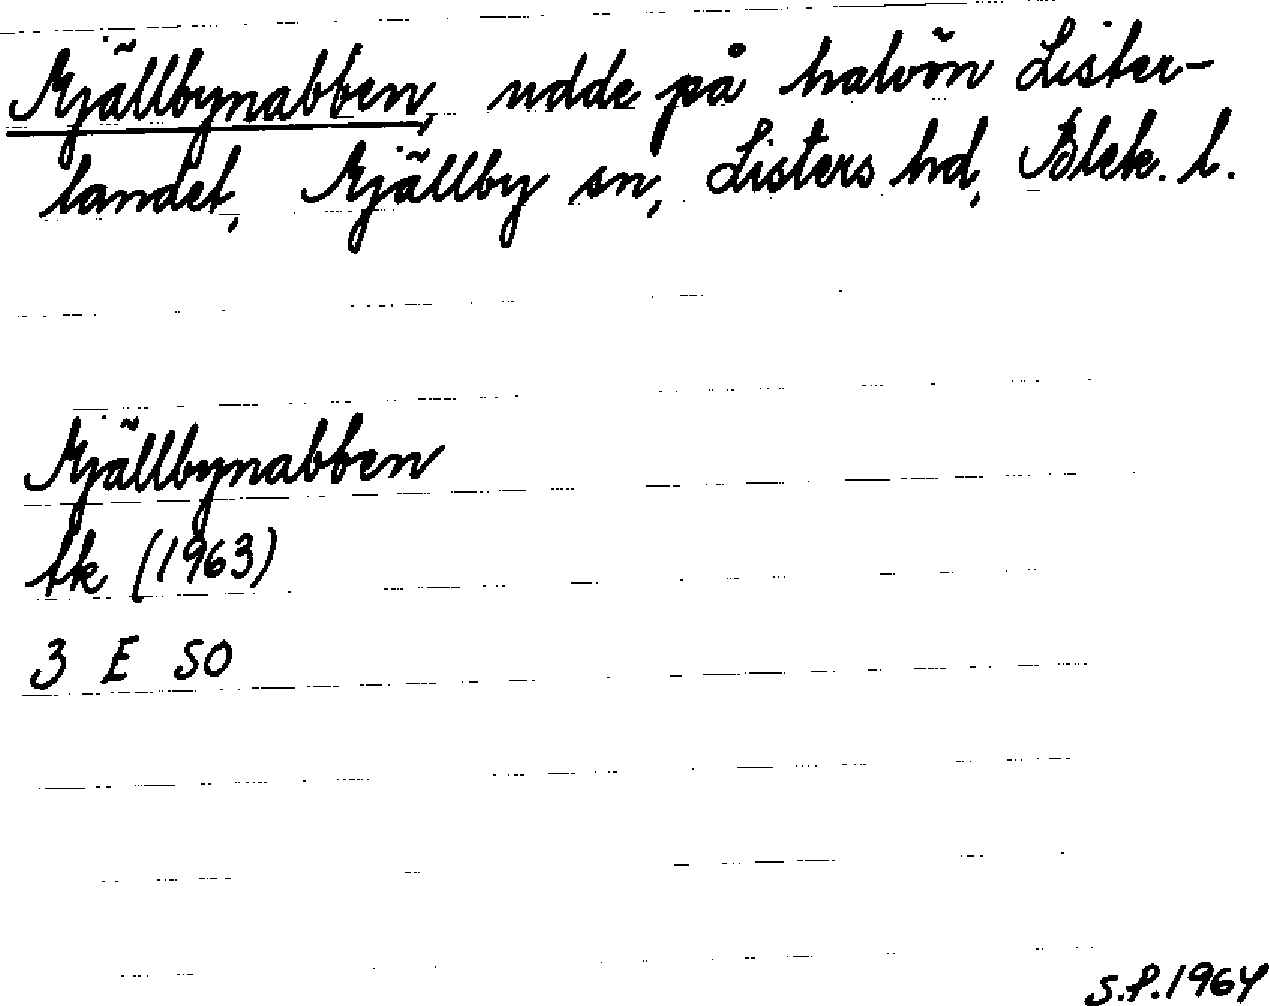 Mjällbynabben, udde på halvön Lister-
landet, Mjällby sn, Listers hd, Blek. l.
Mjällbynabben
tk (1963)
3 E SO
S.P. 1964